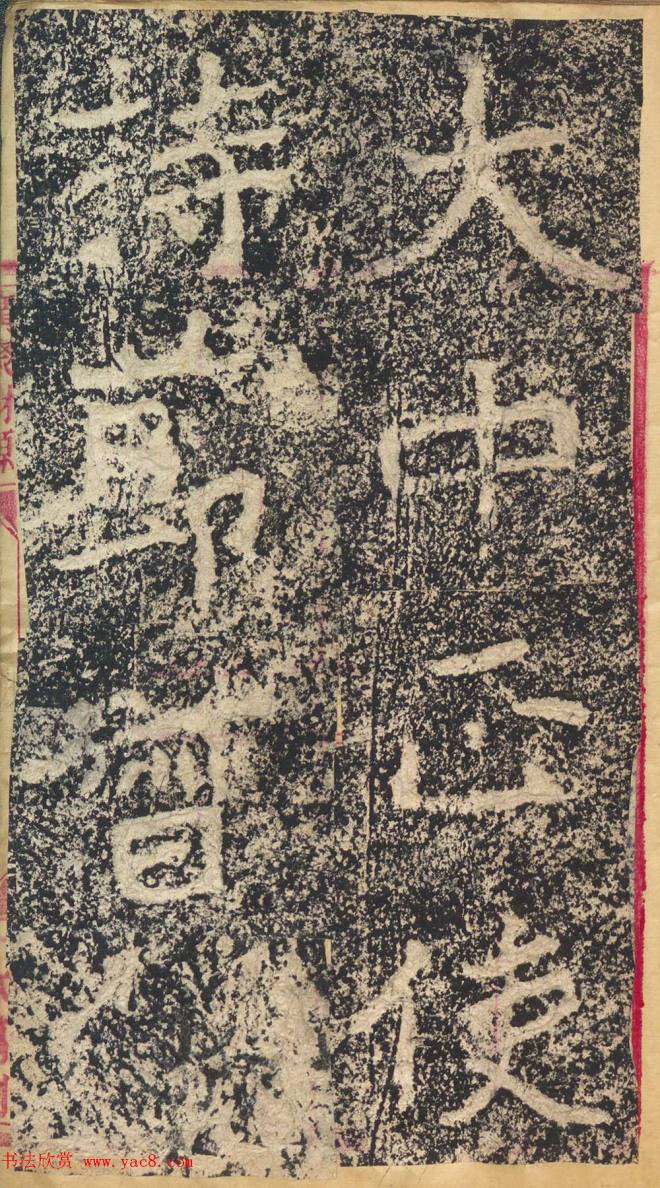 大中正使
持節督
书法欣赏 www.yac8.com